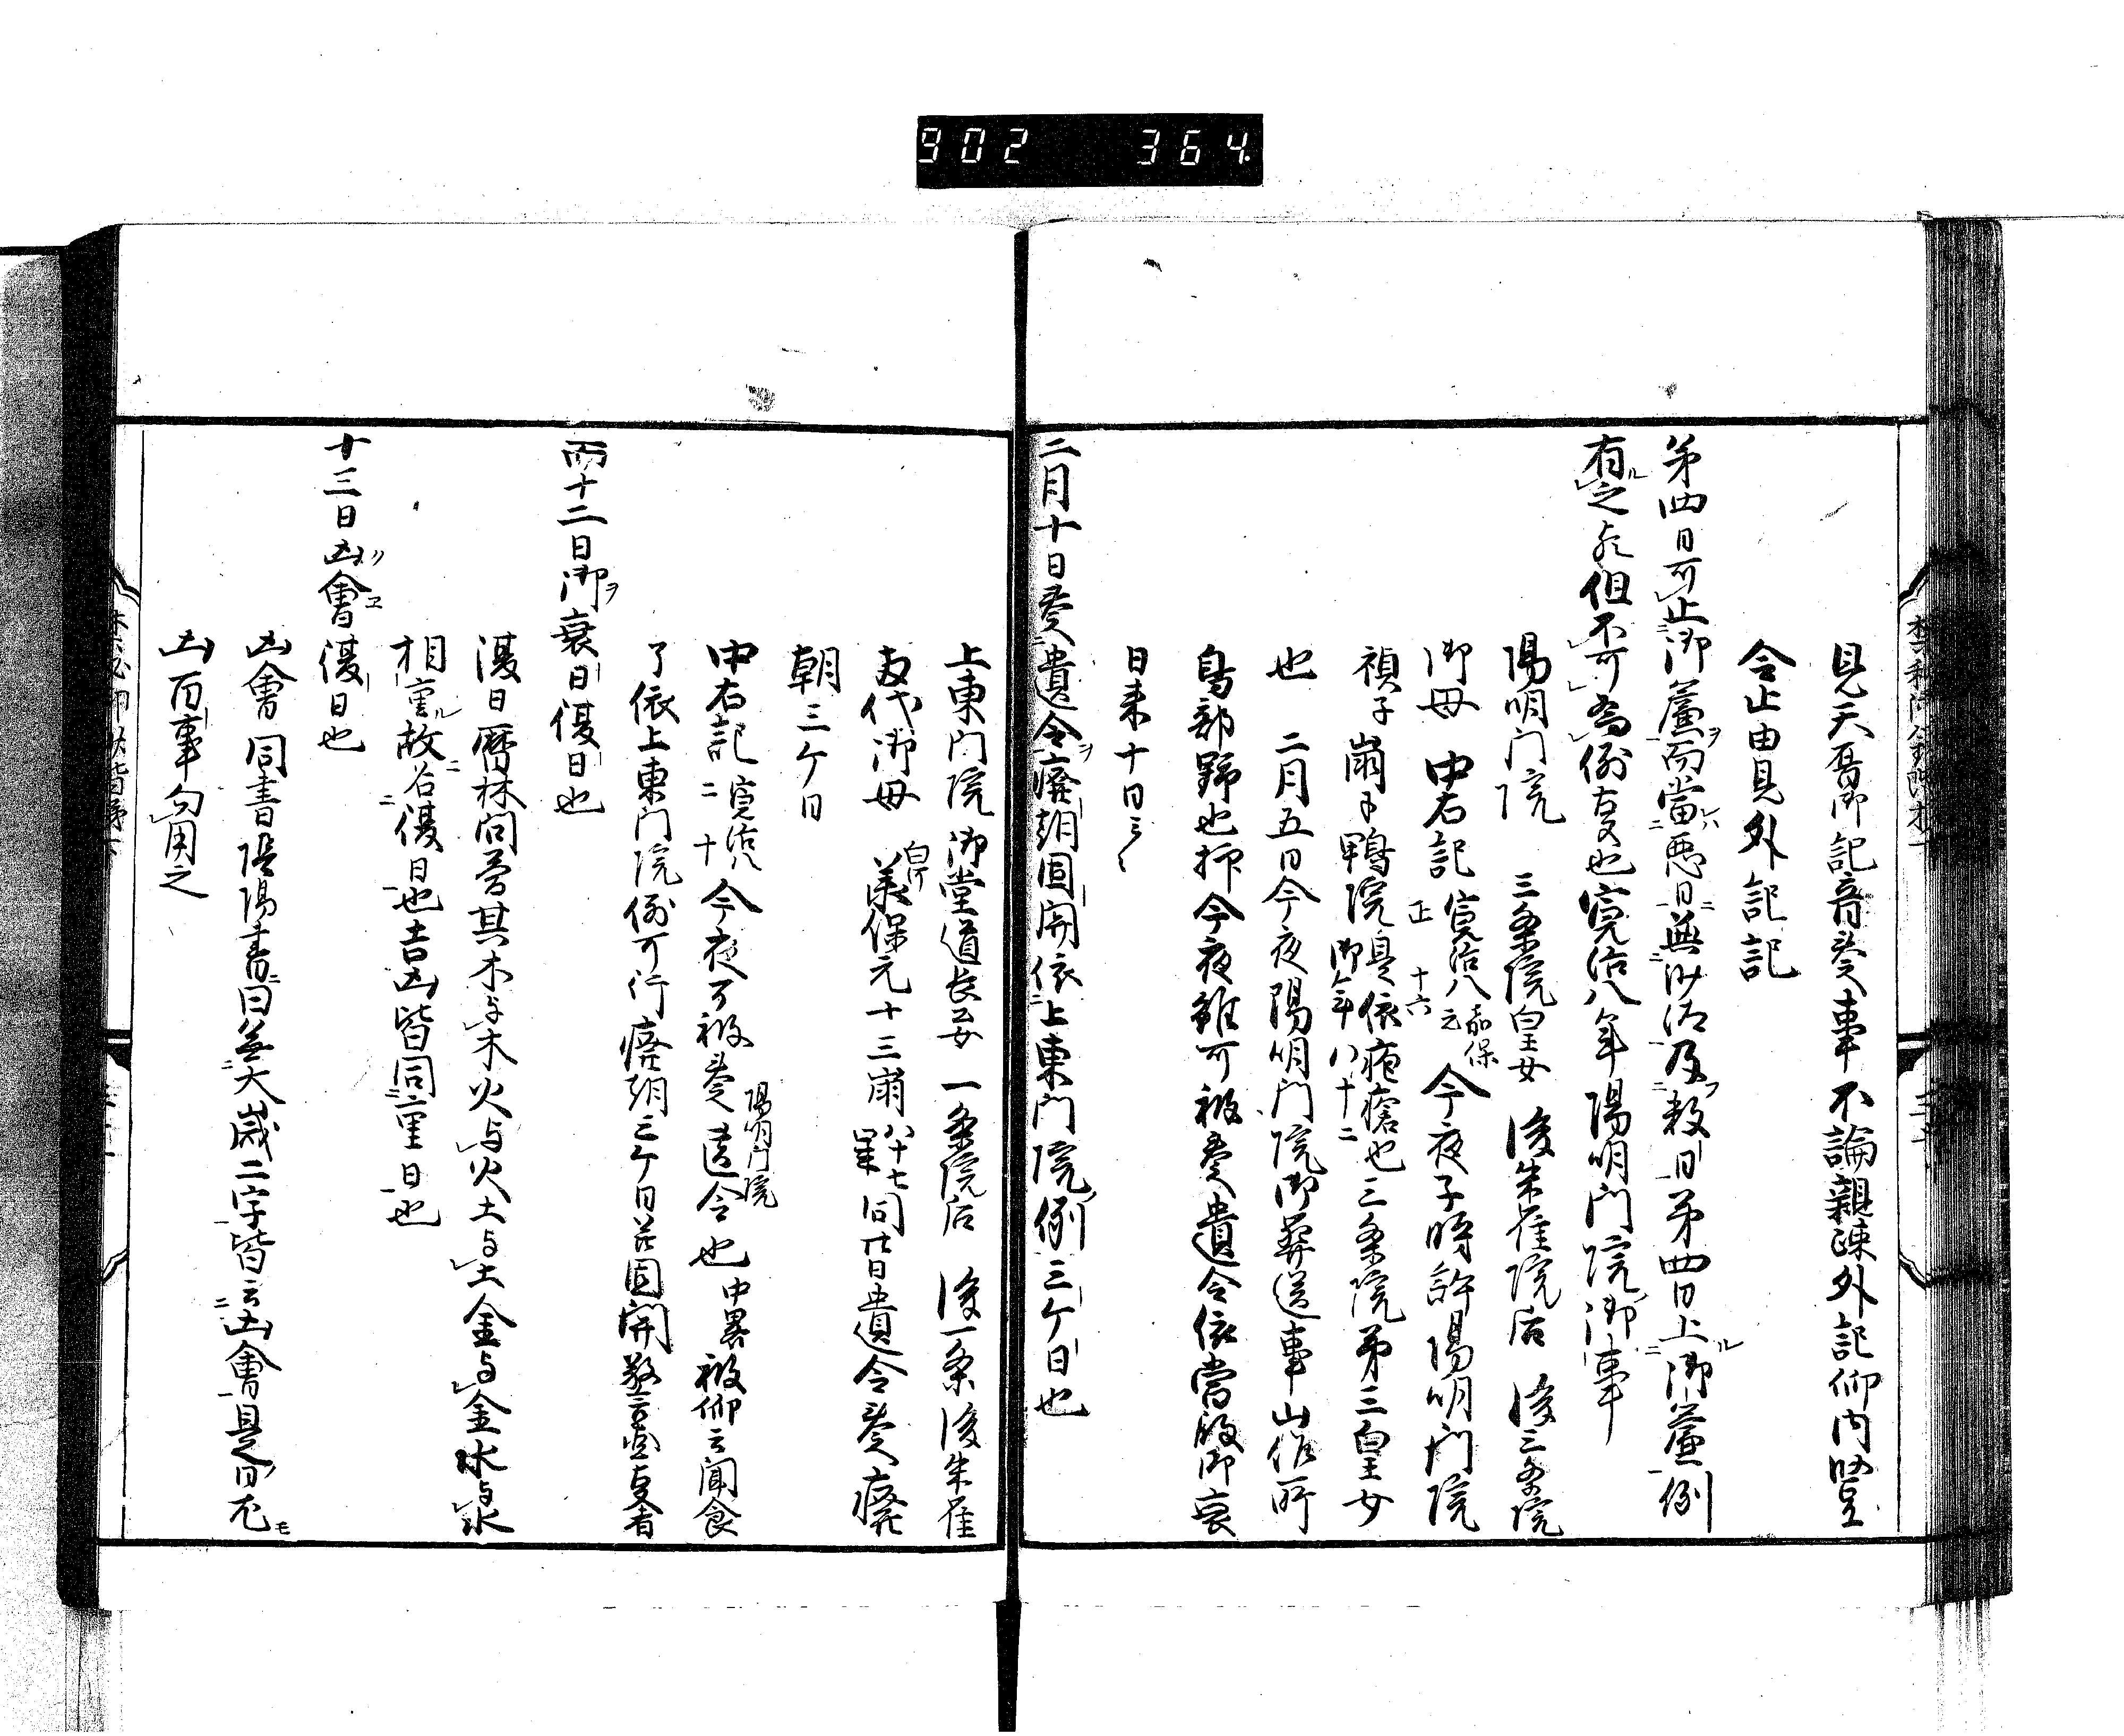 902 364
見天暦御記音奏事不論親疎外記仰内竪
令止由見外記記
第四日可止御簾而當惡日無沙汰及數日第四日上御簾例
有之歟但不可為例友也寛治八年陽明門院御事
陽明門院 三条院皇女 後朱雀院后 後三条院
御母 中右記 寛治八 嘉保元 正 十六 今夜子時許陽明門院
禎子崩于鴨院是依疱瘡也三条院第三皇女 御年八十二
也 二月五日今夜陽明門院御葬送事山作所
鳥部野也抑今夜雖可被奏遺令依當殿御衰
日来十日云々
二月十日奏遺令廢朝固関依上東門院例三ケ日也
上東門院 御堂道長女 一条院后 後一条後朱雀
友代御母 白河 承保元十三崩八十七 同廿日遺令奏廢
朝三ケ日
中右記 寛治八 二 十 今夜可被奏遺令也 陽明門院 中畧 被仰云聞食
了依上東門院例可行廢朝三ケ日并固関警固者
而十二日御衰日復日也
復日暦林問荅其木与木火与火土与土金与金水与水
相重故名復日也吉凶皆同重日也
十三日凶會復日也
凶會同書陰陽書曰無大歳二字皆云凶會是日尤
凶百事勿用之